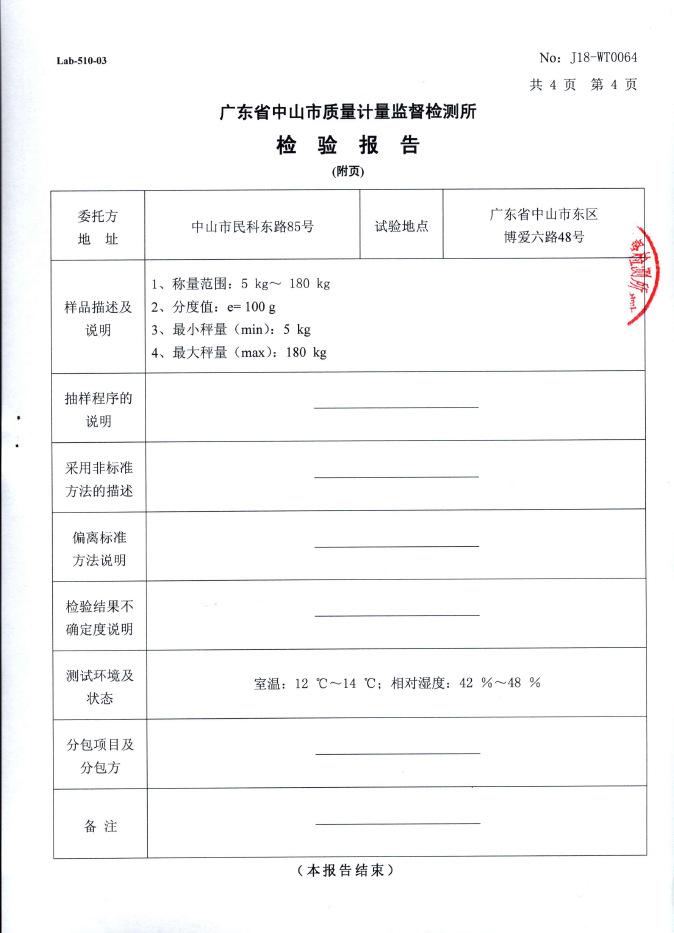 Lab-510-03
No: J18-WT0064
共 4 页 第 4 页
广东省中山市质量计量监督检测所
检 验 报 告
(附页)
委托方
地 址
中山市民科东路85号
试验地点
广东省中山市东区
博爱六路48号
样品描述及
说明
1、称量范围：5 kg～ 180 kg
2、分度值：e= 100 g
3、最小秤量（min）：5 kg
4、最大秤量（max）：180 kg
抽样程序的
说明
采用非标准
方法的描述
偏离标准
方法说明
检验结果不
确定度说明
测试环境及
状态
室温：12 ℃～14 ℃；相对湿度：42 %～48 %
分包项目及
分包方
备 注
检测所
（本报告结束）